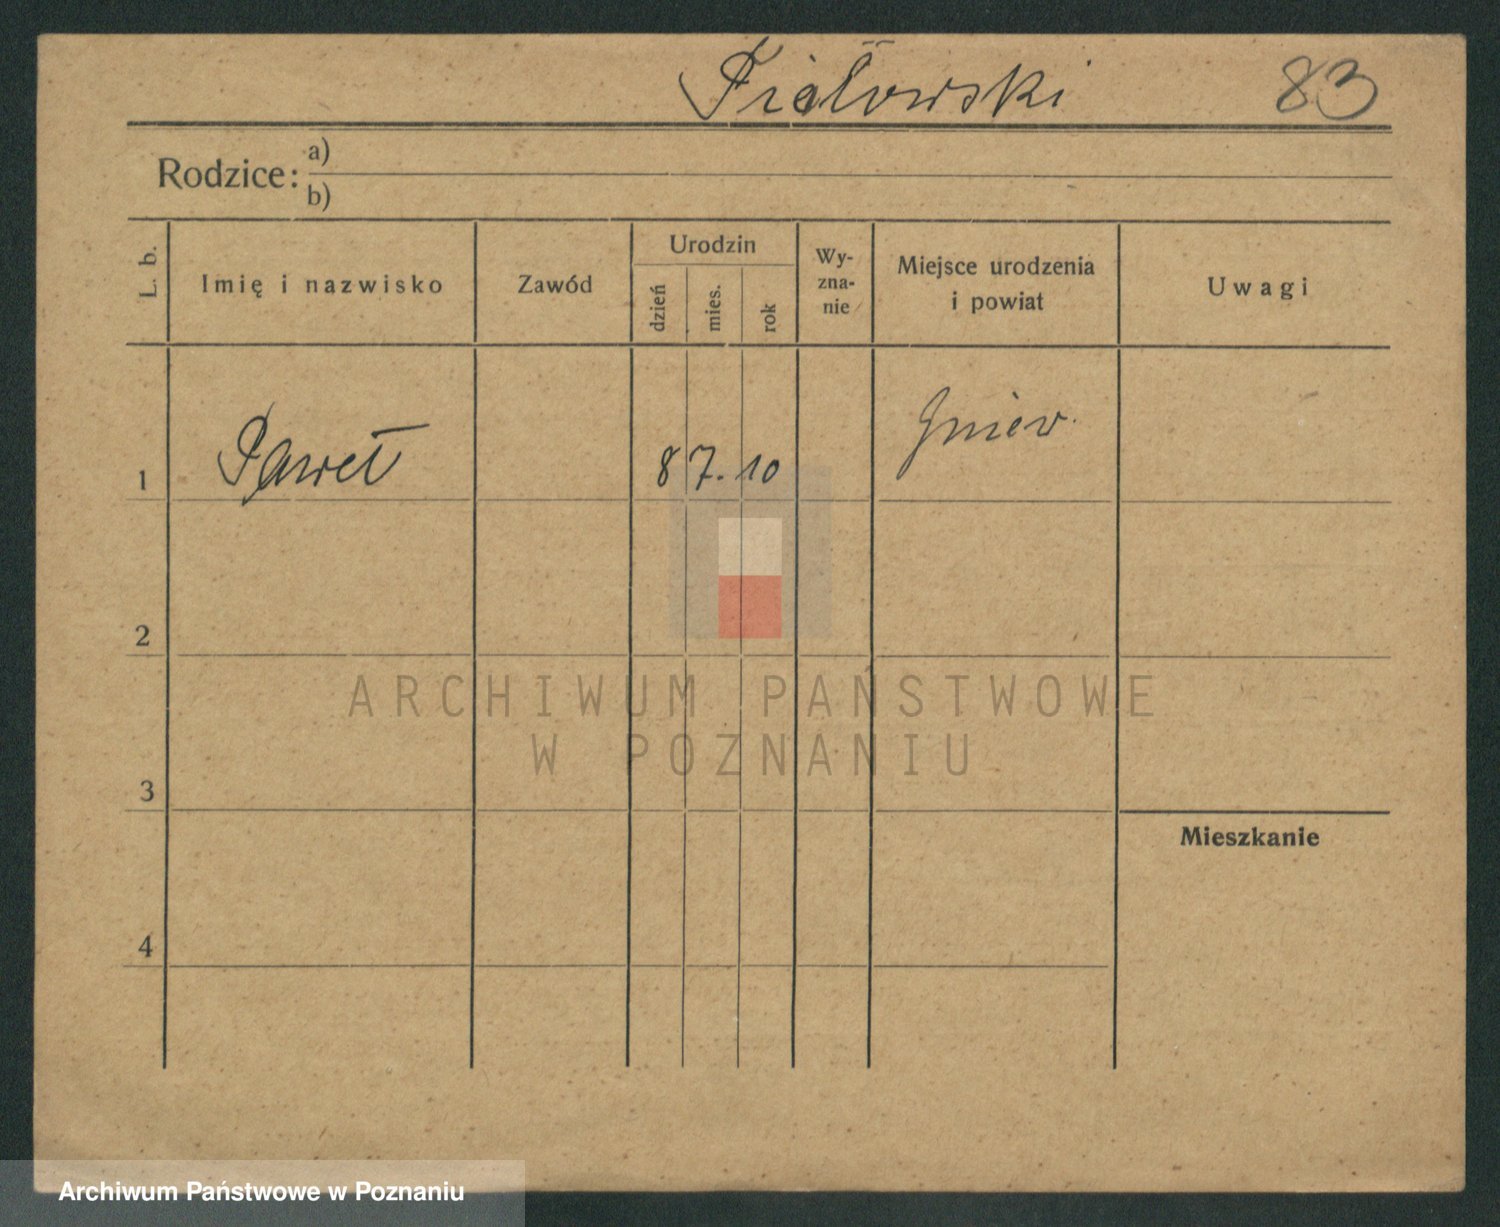 Fiałowski 83
Rodzice: a)
b)
L. b.
Imię i nazwisko
Zawód
Urodzin
dzień
mies.
rok
Wy-
zna-
nie
Miejsce urodzenia
i powiat
Uwagi
1 Paweł 8 7. 10 Gniew.
2
3
4
Mieszkanie
ARCHIWUM PAŃSTWOWE
W POZNANIU
Archiwum Państwowe w Poznaniu